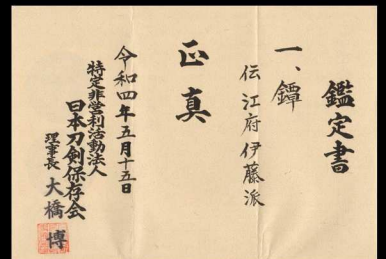 鑑定書
一、鐔
伝 江府伊藤派
正真
令和四年五月十五日
特定非営利活動法人
日本刀剣保存会
理事長 大橋 博